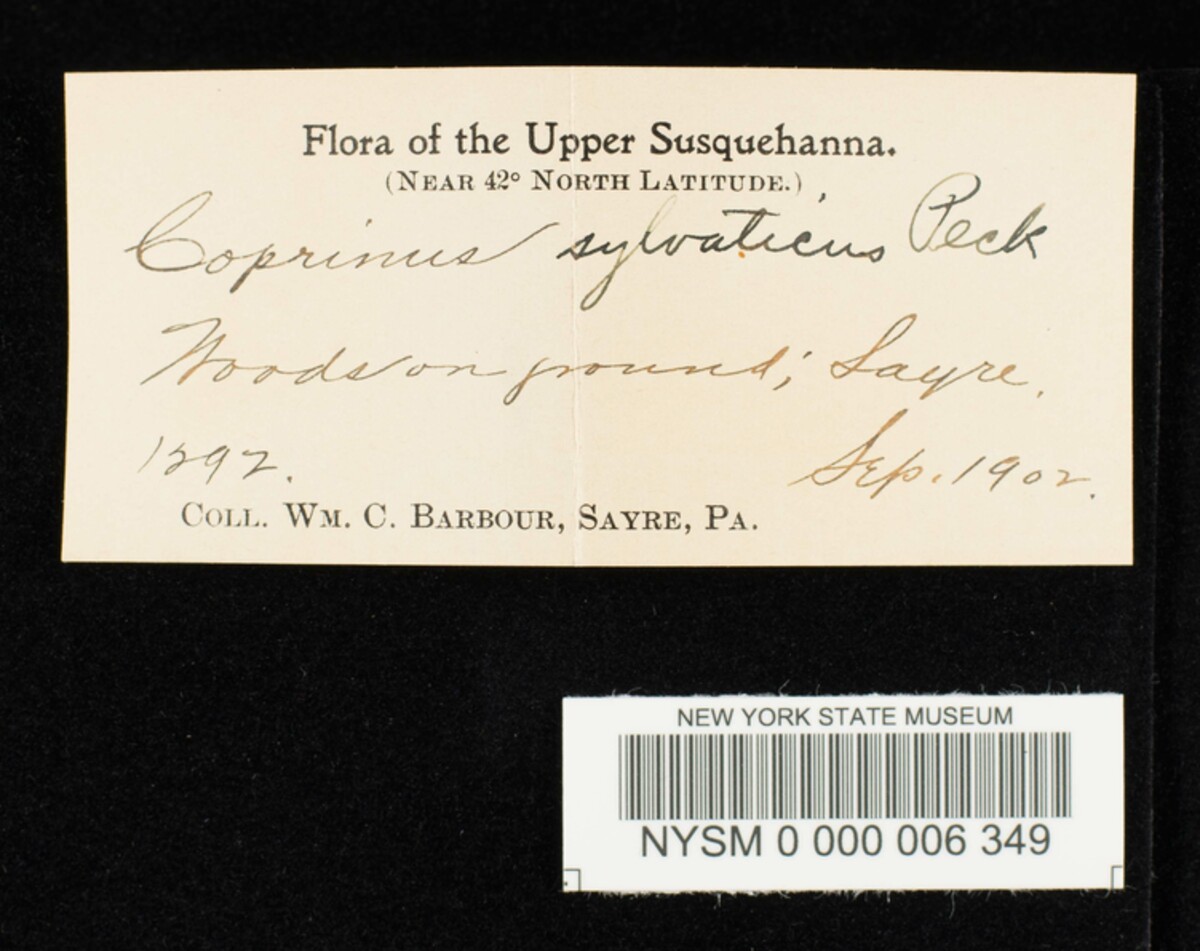 Flora of the Upper Susquehanna.
(Near 42° North Latitude.)
Coprinus sylvaticus Peck
Woods on ground; Sayre.
1292. Sep. 1902.
Coll. Wm. C. Barbour, Sayre, Pa.
NEW YORK STATE MUSEUM
NYSM 0 000 006 349